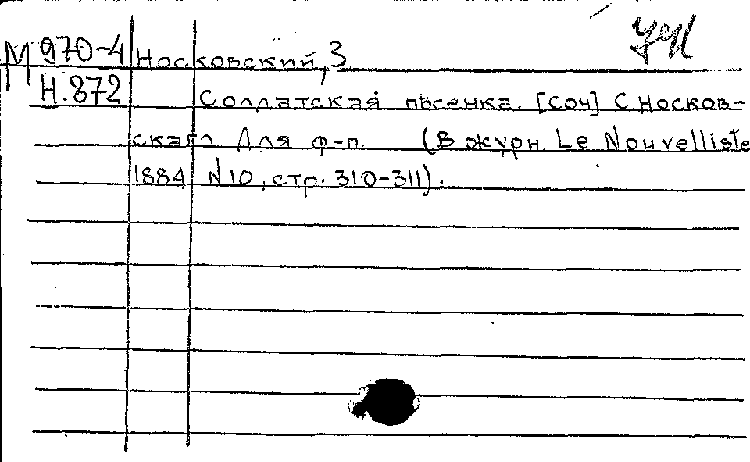 М 970-4 Носковский, З
Н.872 Солдатская песенка. [Соч] С Носков-
скаго Для ф-п. (В журн. Le Nouvelliste
1884 N10, стр. 310-311).